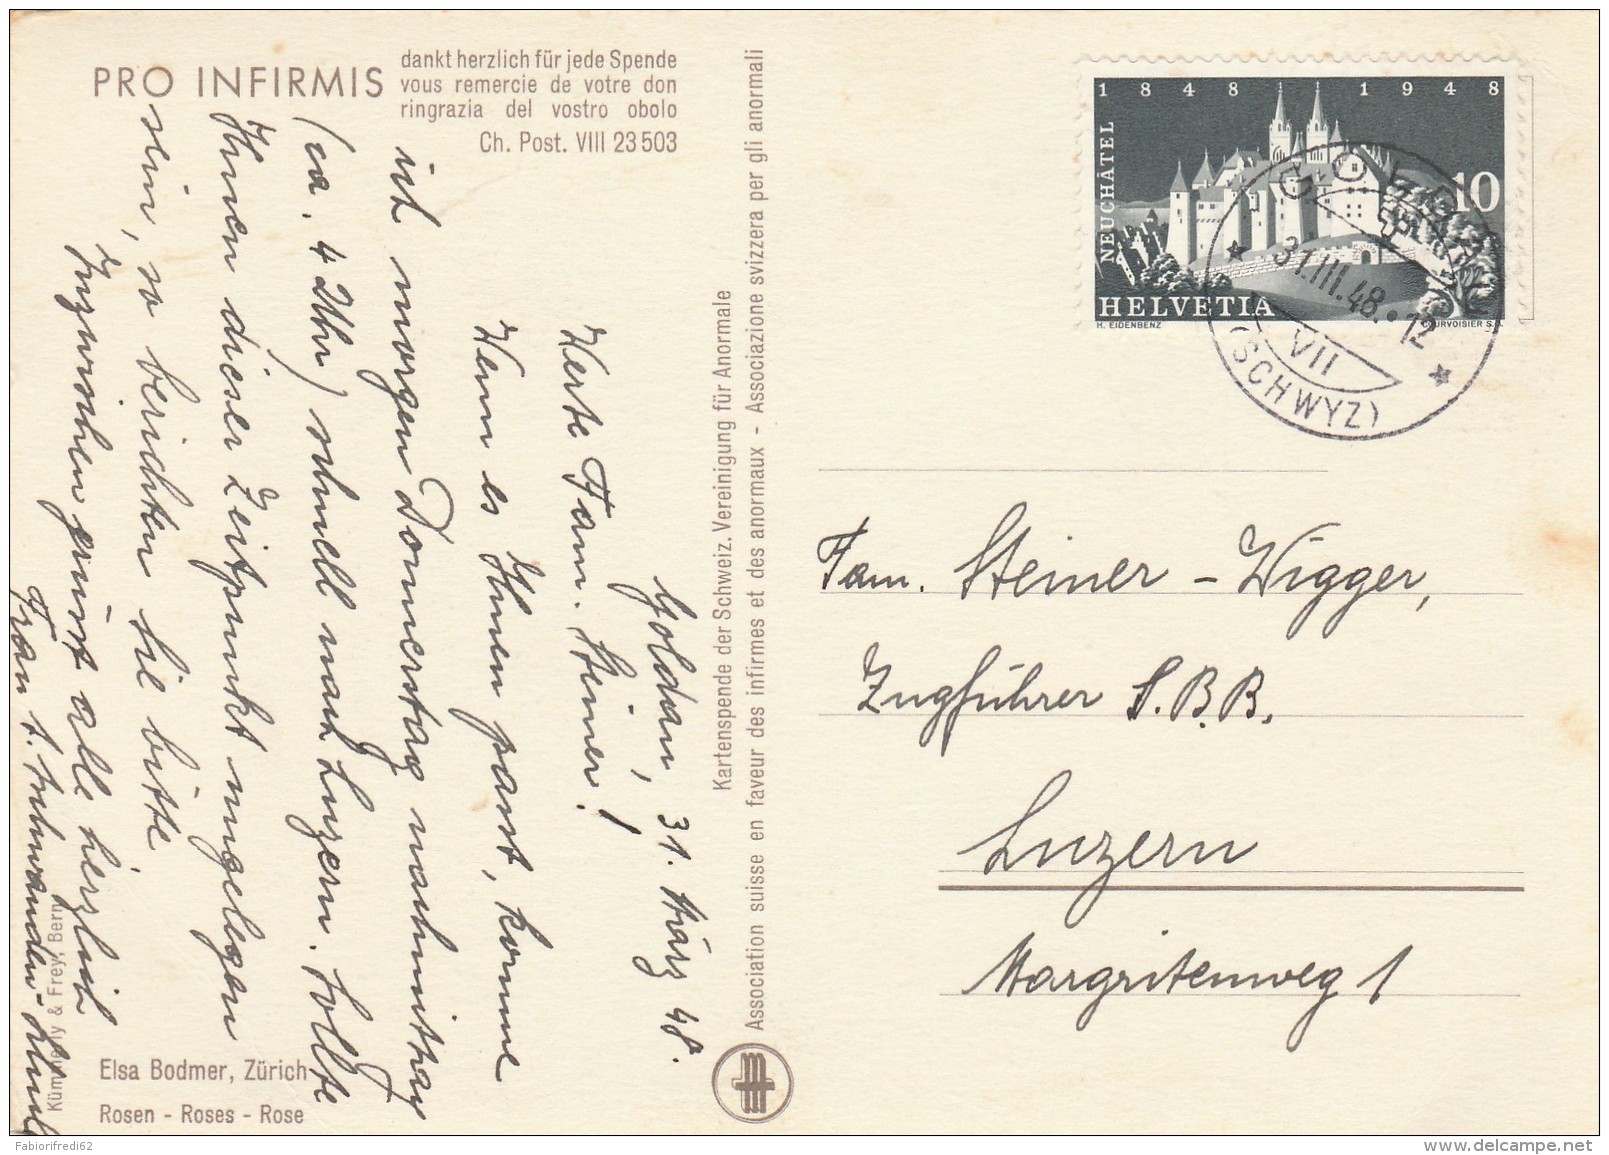 PRO INFIRMIS
dankt herzlich für jede Spende
vous remercie de votre don
ringrazia del vostro obolo
Ch. Post. VIII 23 503
Goldau, 31. März 48.
Werte Fam. Steiner!
Wenn es Ihnen passt, komme
ich morgen Donnerstag nachmittag
(ca. 4 Uhr) schnell nach Luzern. Sollte
Ihnen dieser Zeitpunkt ungelegen
sein, so berichten Sie bitte
Inzwischen grüsst alle herzlich
Frau
Kümmerly & Frey, Bern
Elsa Bodmer, Zürich
Rosen - Roses - Rose
Kartenspende der Schweiz. Vereinigung für Anormale
Association suisse en faveur des infirmes et des anormaux - Associazione svizzera per gli anormali
1848 1948
NEUCHÂTEL
10
HELVETIA
H. EIDENBENZ
COURVOISIER S.A.
31.III.48.•12
VII
(SCHWYZ)
Fam. Steiner - Wigger,
Zugführer S.B.B.
Luzern
Margritenweg 1
Fabiorifredi62
www.delcampe.net